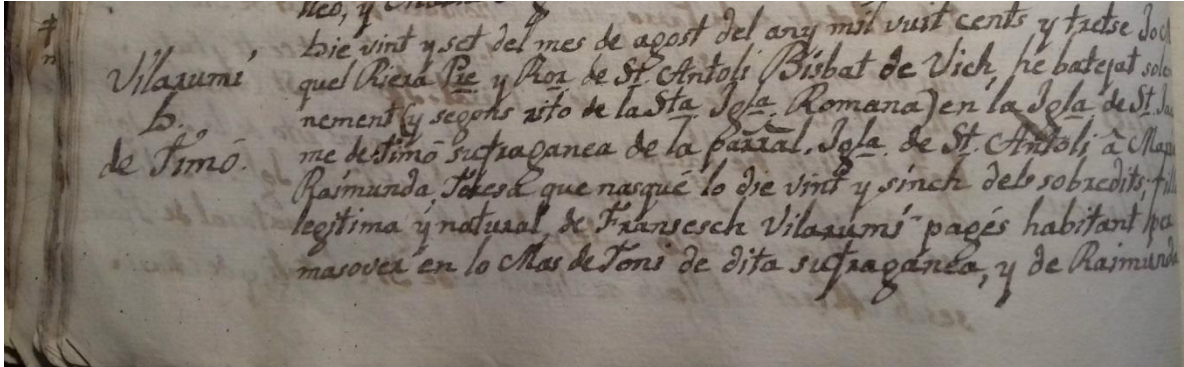 lleó, y
Die vint y set del mes de agost del any mil vuit cents y tretse Jo
Vilarumí
quel Riera Pre y Ror de St Antoli Bisbat de Vich, he batejat solem
nement (y segons rito de la Sta Igla Romana) en la Igla de St Jau
b.
me de Timó sufraganea de la parral. Igla de St Antoli â Maria
de Timó.
Raimunda, Teresa que nasqué lo die vint y sinch dels sobredits, filla
legitima ý natural de Fransesch Vilarumí pagés habitant
masover en lo Mas de Toni de dita sufraganea, y de Raimunda